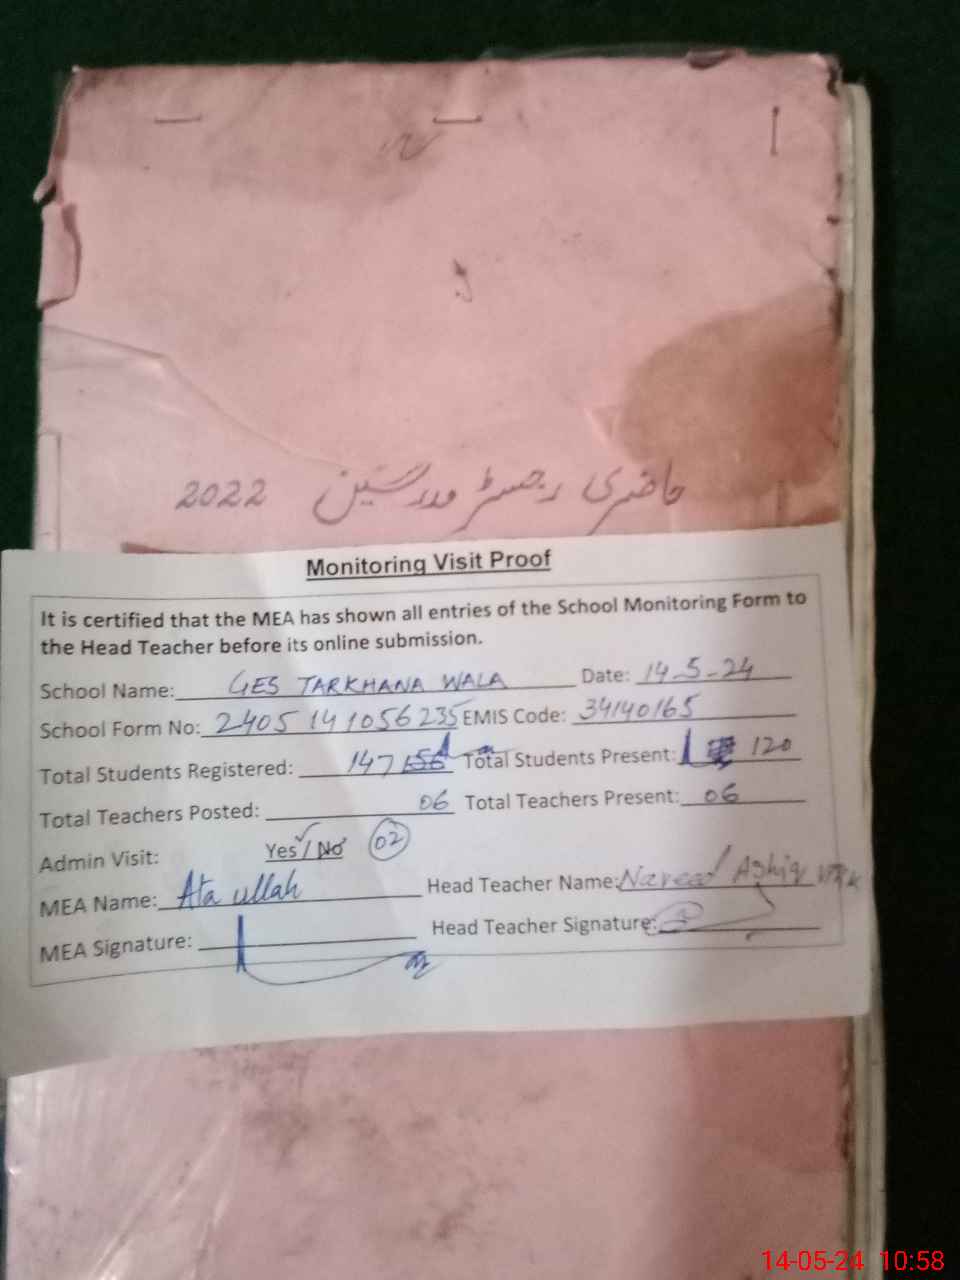 حاضری رجسٹر مدرسین 2022
Monitoring Visit Proof
It is certified that the MEA has shown all entries of the School Monitoring Form to
the Head Teacher before its online submission.
School Name: GES TARKHANA WALA Date: 14-5-24
School Form No: 2405141056235 EMIS Code: 34140165
Total Students Registered: 147 Total Students Present: 120
Total Teachers Posted: 06 Total Teachers Present: 06
Admin Visit: Yes / No 02
MEA Name: Ata ullah Head Teacher Name: Naveed Ashiq Virk
MEA Signature: Head Teacher Signature:
14-05-24 10:58